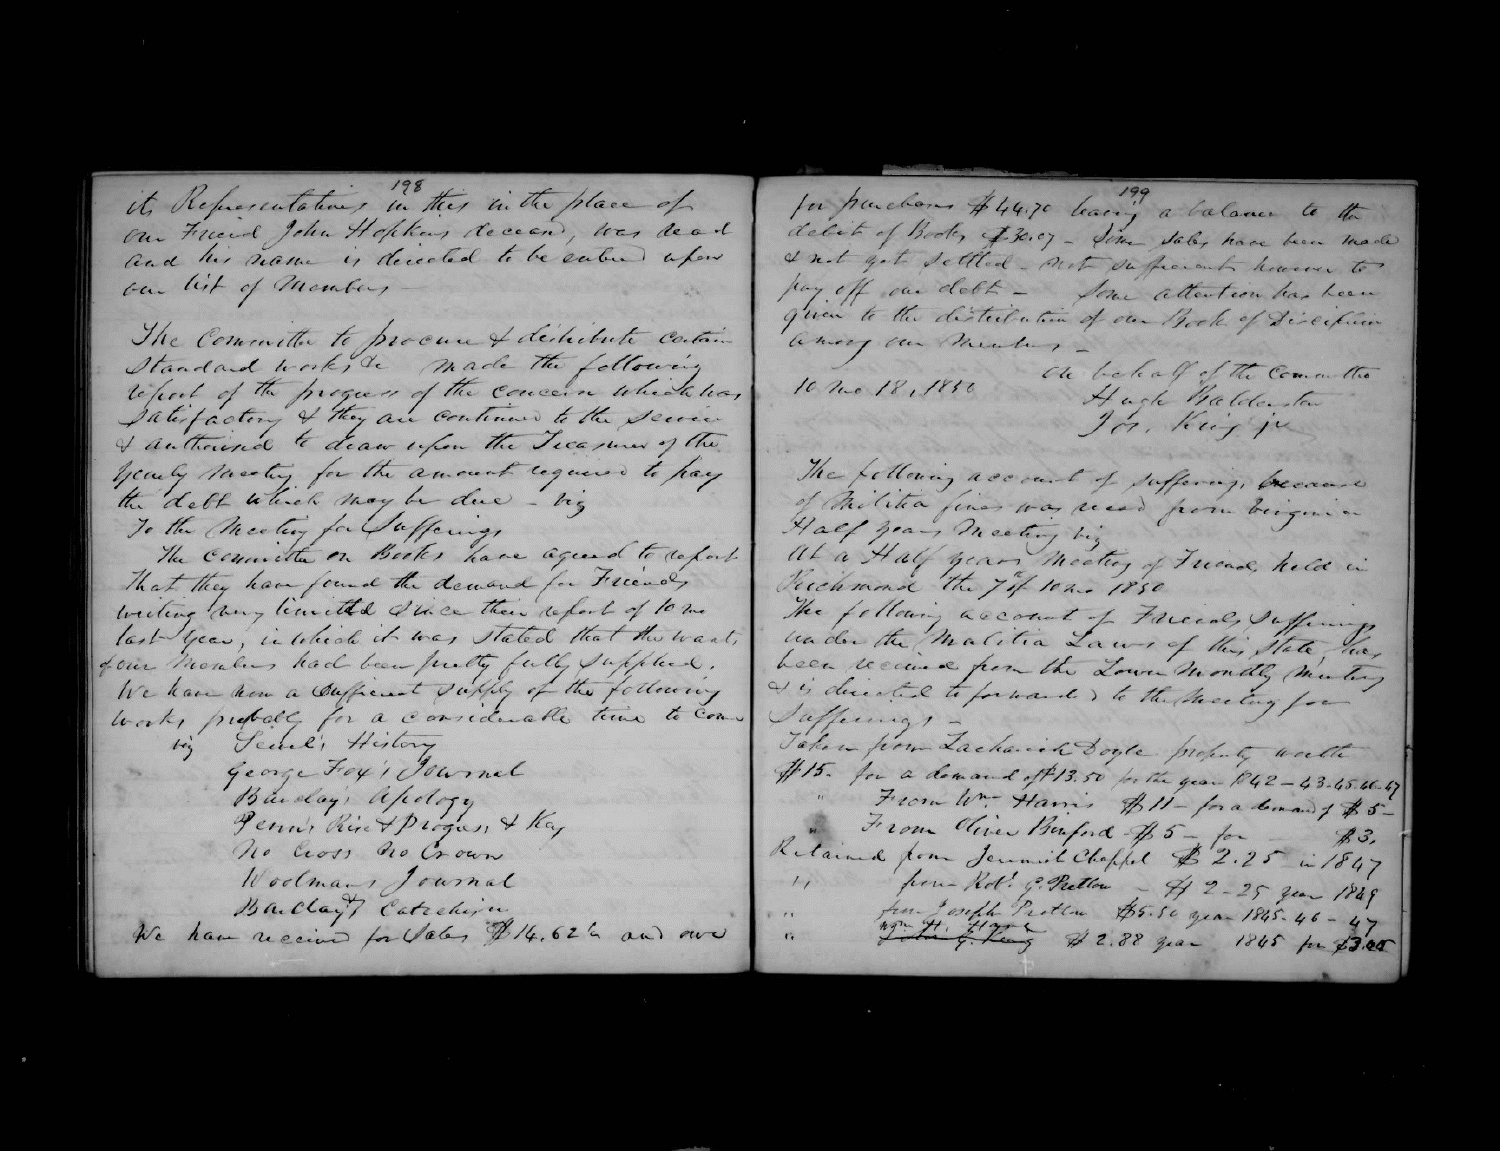 198
its Representatives in this in the place of
our Friend John Hopkins deceased, was read
and his name is directed to be entered upon
our list of Members —
The Committee to procure & distribute certain
standard works &c made the following
report of the progress of the concern which was
satisfactory & they are continued to the service
& authorised to draw upon the Treasurer of the
Yearly Meeting for the amount required to pay
the debt which may be due – viz
To the Meeting for Sufferings
The Committee on Books have agreed to report
That they have found the demand for Friends
writing very limited since their report of 10 mo
last year, in which it was stated that the wants
of our Members had been pretty fully supplied.
We have now a sufficient supply of the following
works probably for a considerable time to come
viz Sewel's History
George Fox's Journal
Barclay's Apology
Penn's Rise & Progress & Key
No Cross No Crown
Woolmans Journal
Barclay's Catechism
We have received for Sales $14.62½ and owe
199
for purchases $44.70 leaving a balance to the
debit of Books $30.07 – Some sales have been made
& not yet settled – not sufficient however to
pay off our debt – Some attention has been
given to the distribution of our Book of Discipline
among our Members –
On behalf of the Committee
10 mo 18, 1850
Hugh Balderston
Jos. King jr
The following account of sufferings because
of Militia fines was recd from Virginia
Half years Meeting viz
At a Half years Meeting of Friends held in
Richmond the 7th of 10 mo 1850
The following account of Friends sufferings
under the Malitia Laws of this State, has
been received from the Lower Monthly Meeting
& is directed to forwarded to the Meeting for
Sufferings –
Taken from Zachariah Doyle property worth
$15– for a demand of $13.50 for the year 1842–43–45–46–47
" From Wm Harris $11– for a demand of $5–
" From Oliver Binford $5– for – $3.
Retained from Jeremiah Chappel $2.25 in 1847
" from Robt. G. Pretlow – $2–25 year 1849
" from Joseph Pretlow $5.50 year 1845–46–47
" Wm H. $2.88 year 1845 for $3.00